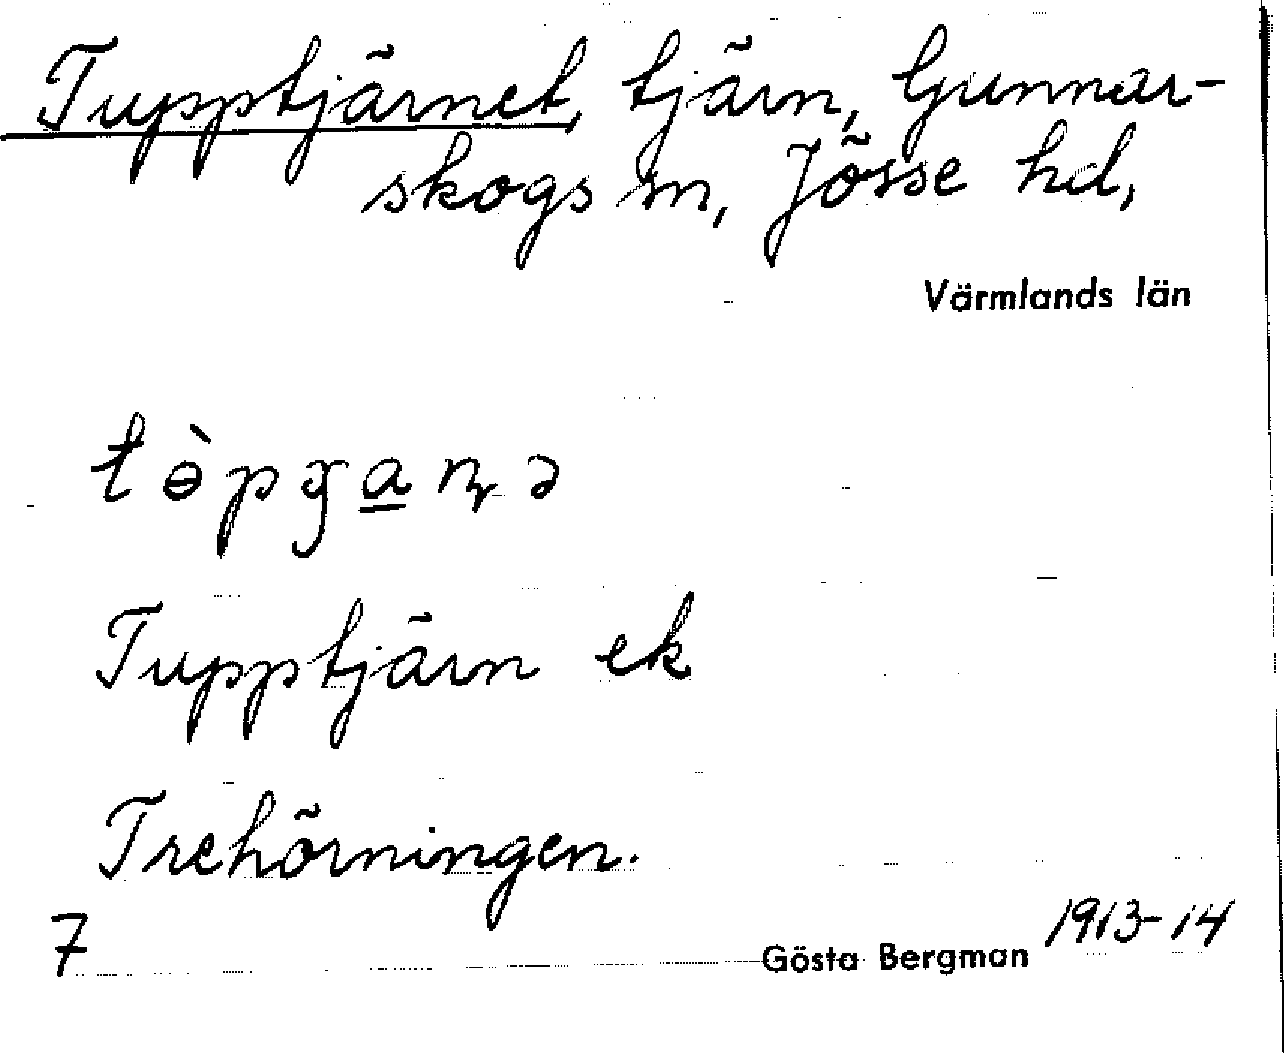 Tupptjärnet, tjärn, Gunnar-
skogs sn, Jösse hd,
Värmlands län
Tupptjärn ek
Trehörningen.
7
Gösta Bergman 1913-14